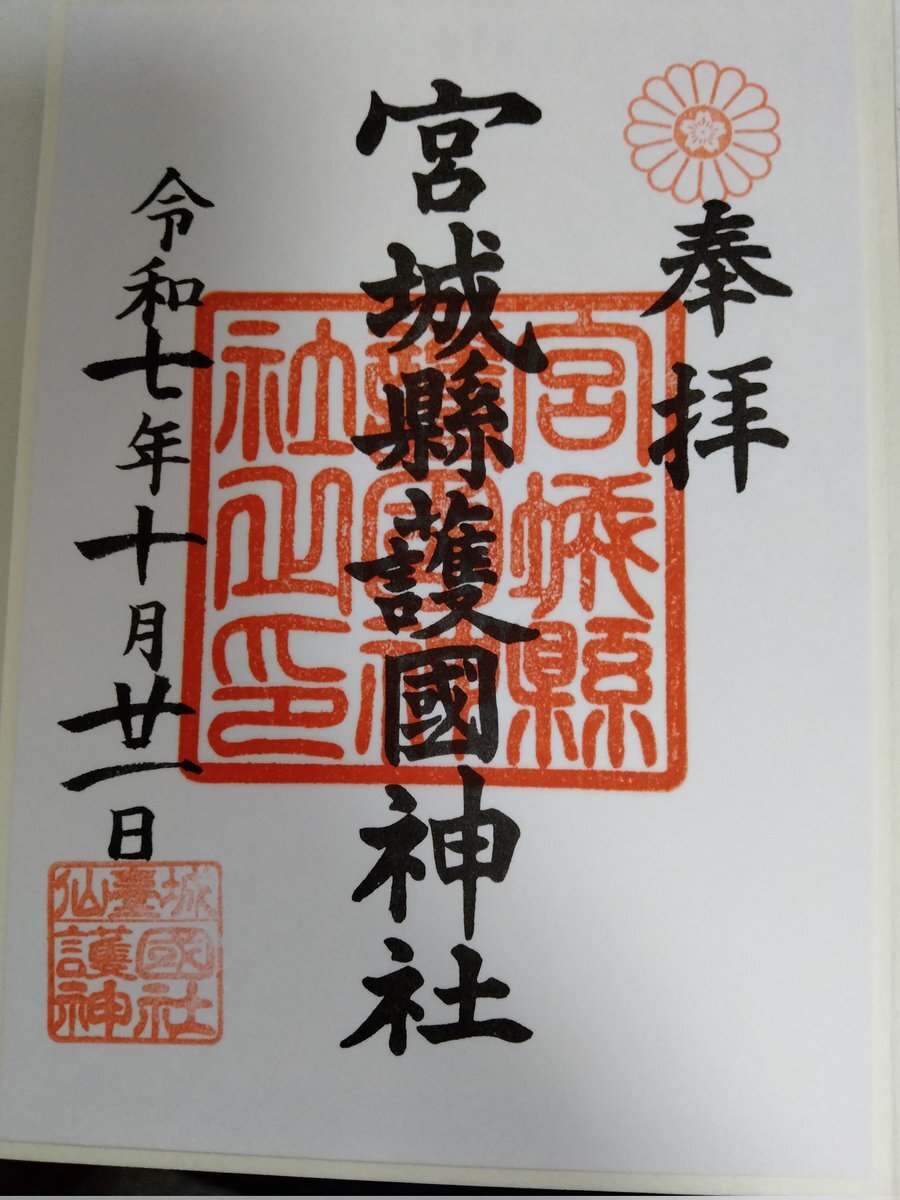 奉拝
宮城縣護國神社
宮城縣
護國神
社之印
令和七年十月廿一日
仙臺城
護國
神社